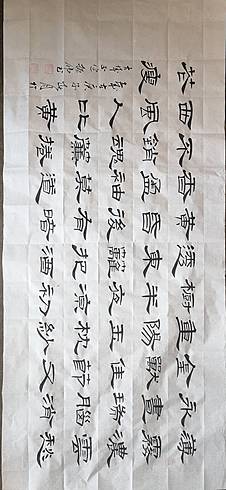 薄霧濃雲愁
永晝瑞腦消
金獸佳節又
重陽玉枕紗
橱半夜涼初
透東籬把酒
黃昏後有暗
香盈袖莫道
不銷魂簾捲
西風人比黃
花瘦